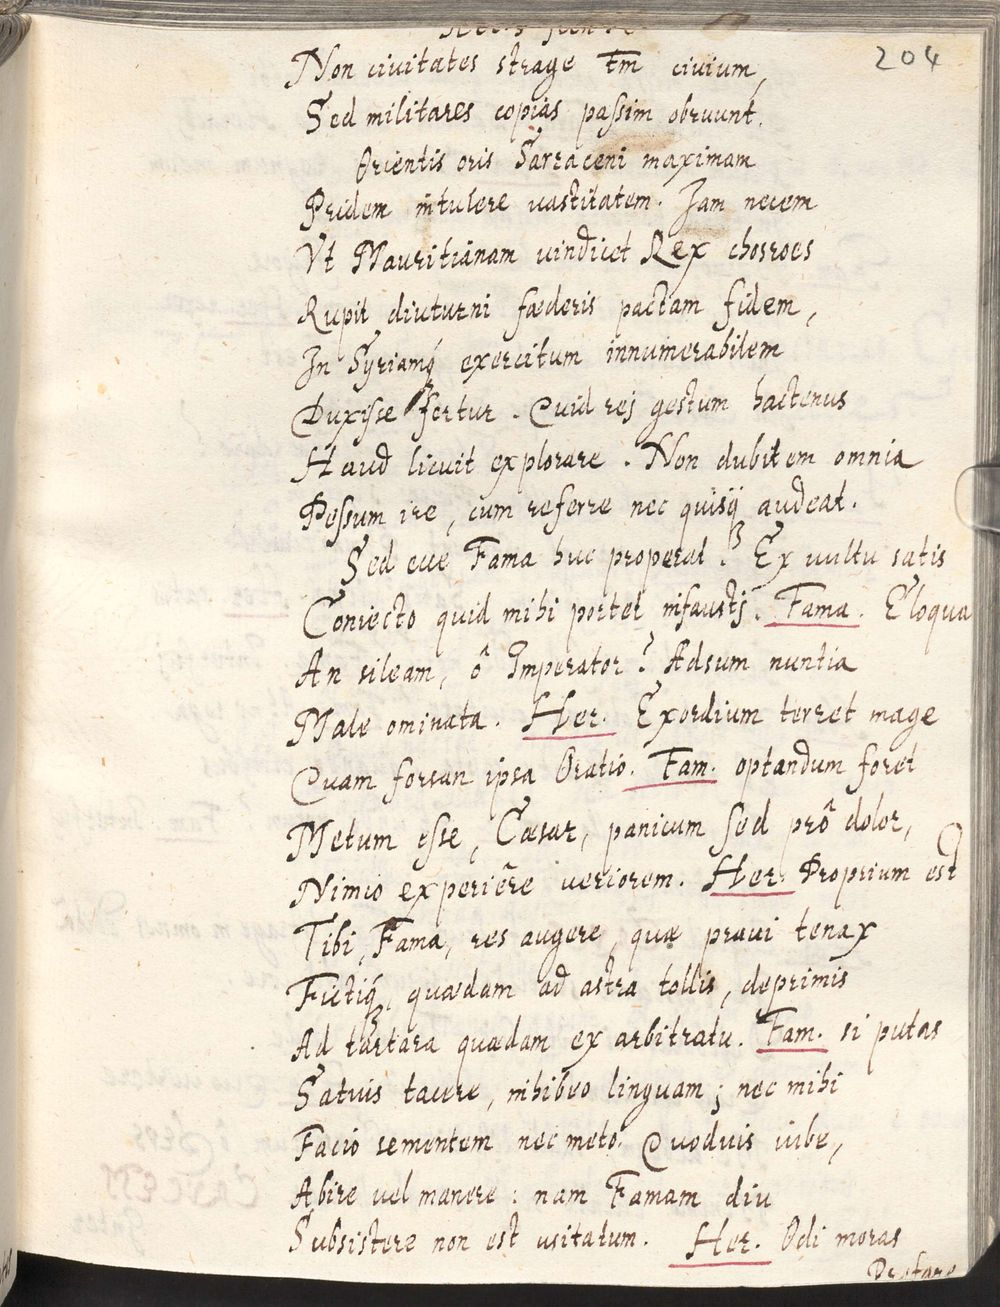 204
Non ciuitates strage tm̄ ciuium,
Sed militares copias paſsim obruunt.
Orientis oris Sarraceni maximam
Pridem intulere uastitatem. Iam necem
Vt Mauritianam uindicet Rex chosroes
Rupit diuturni fœderis pactam fidem,
In Syriamq́ꝫ exercitum innumerabilem
Duxiſse fertur. Quid rej gestum hactenus
Haud licuit explorare. Non dubitem omnia
Peſsum ire, cum referre nec quisqꝫ audeat.
Sed ecce Fama huc properat. Ex uultu satis
Coniecto quid mihi portet infaustj. Fama. Eloquar
An sileam, ô Imperator? Adsum nuntia
Male ominata. Her. Exordium terret mage
Quam forsan ipsa Oratio. Fam. optandum foret
Metum eſse, Cæsar, panicum sed prô dolor,
Nimio experiêre ueriorem. Her. Proprium est
Tibi, Fama, res augere, quæ praui tenax
Fictiq́ꝫ, quædam ad astra tollis, deprimis
Ad tartara quædam ex arbitratu. Fam. si putas
Satius tacere, inhibeo linguam; nec mihi
Facio sementem nec meto. Quoduis iube,
Abire uel manere: nam Famam diu
Subsistere non est usitatum. Her. Odi moras